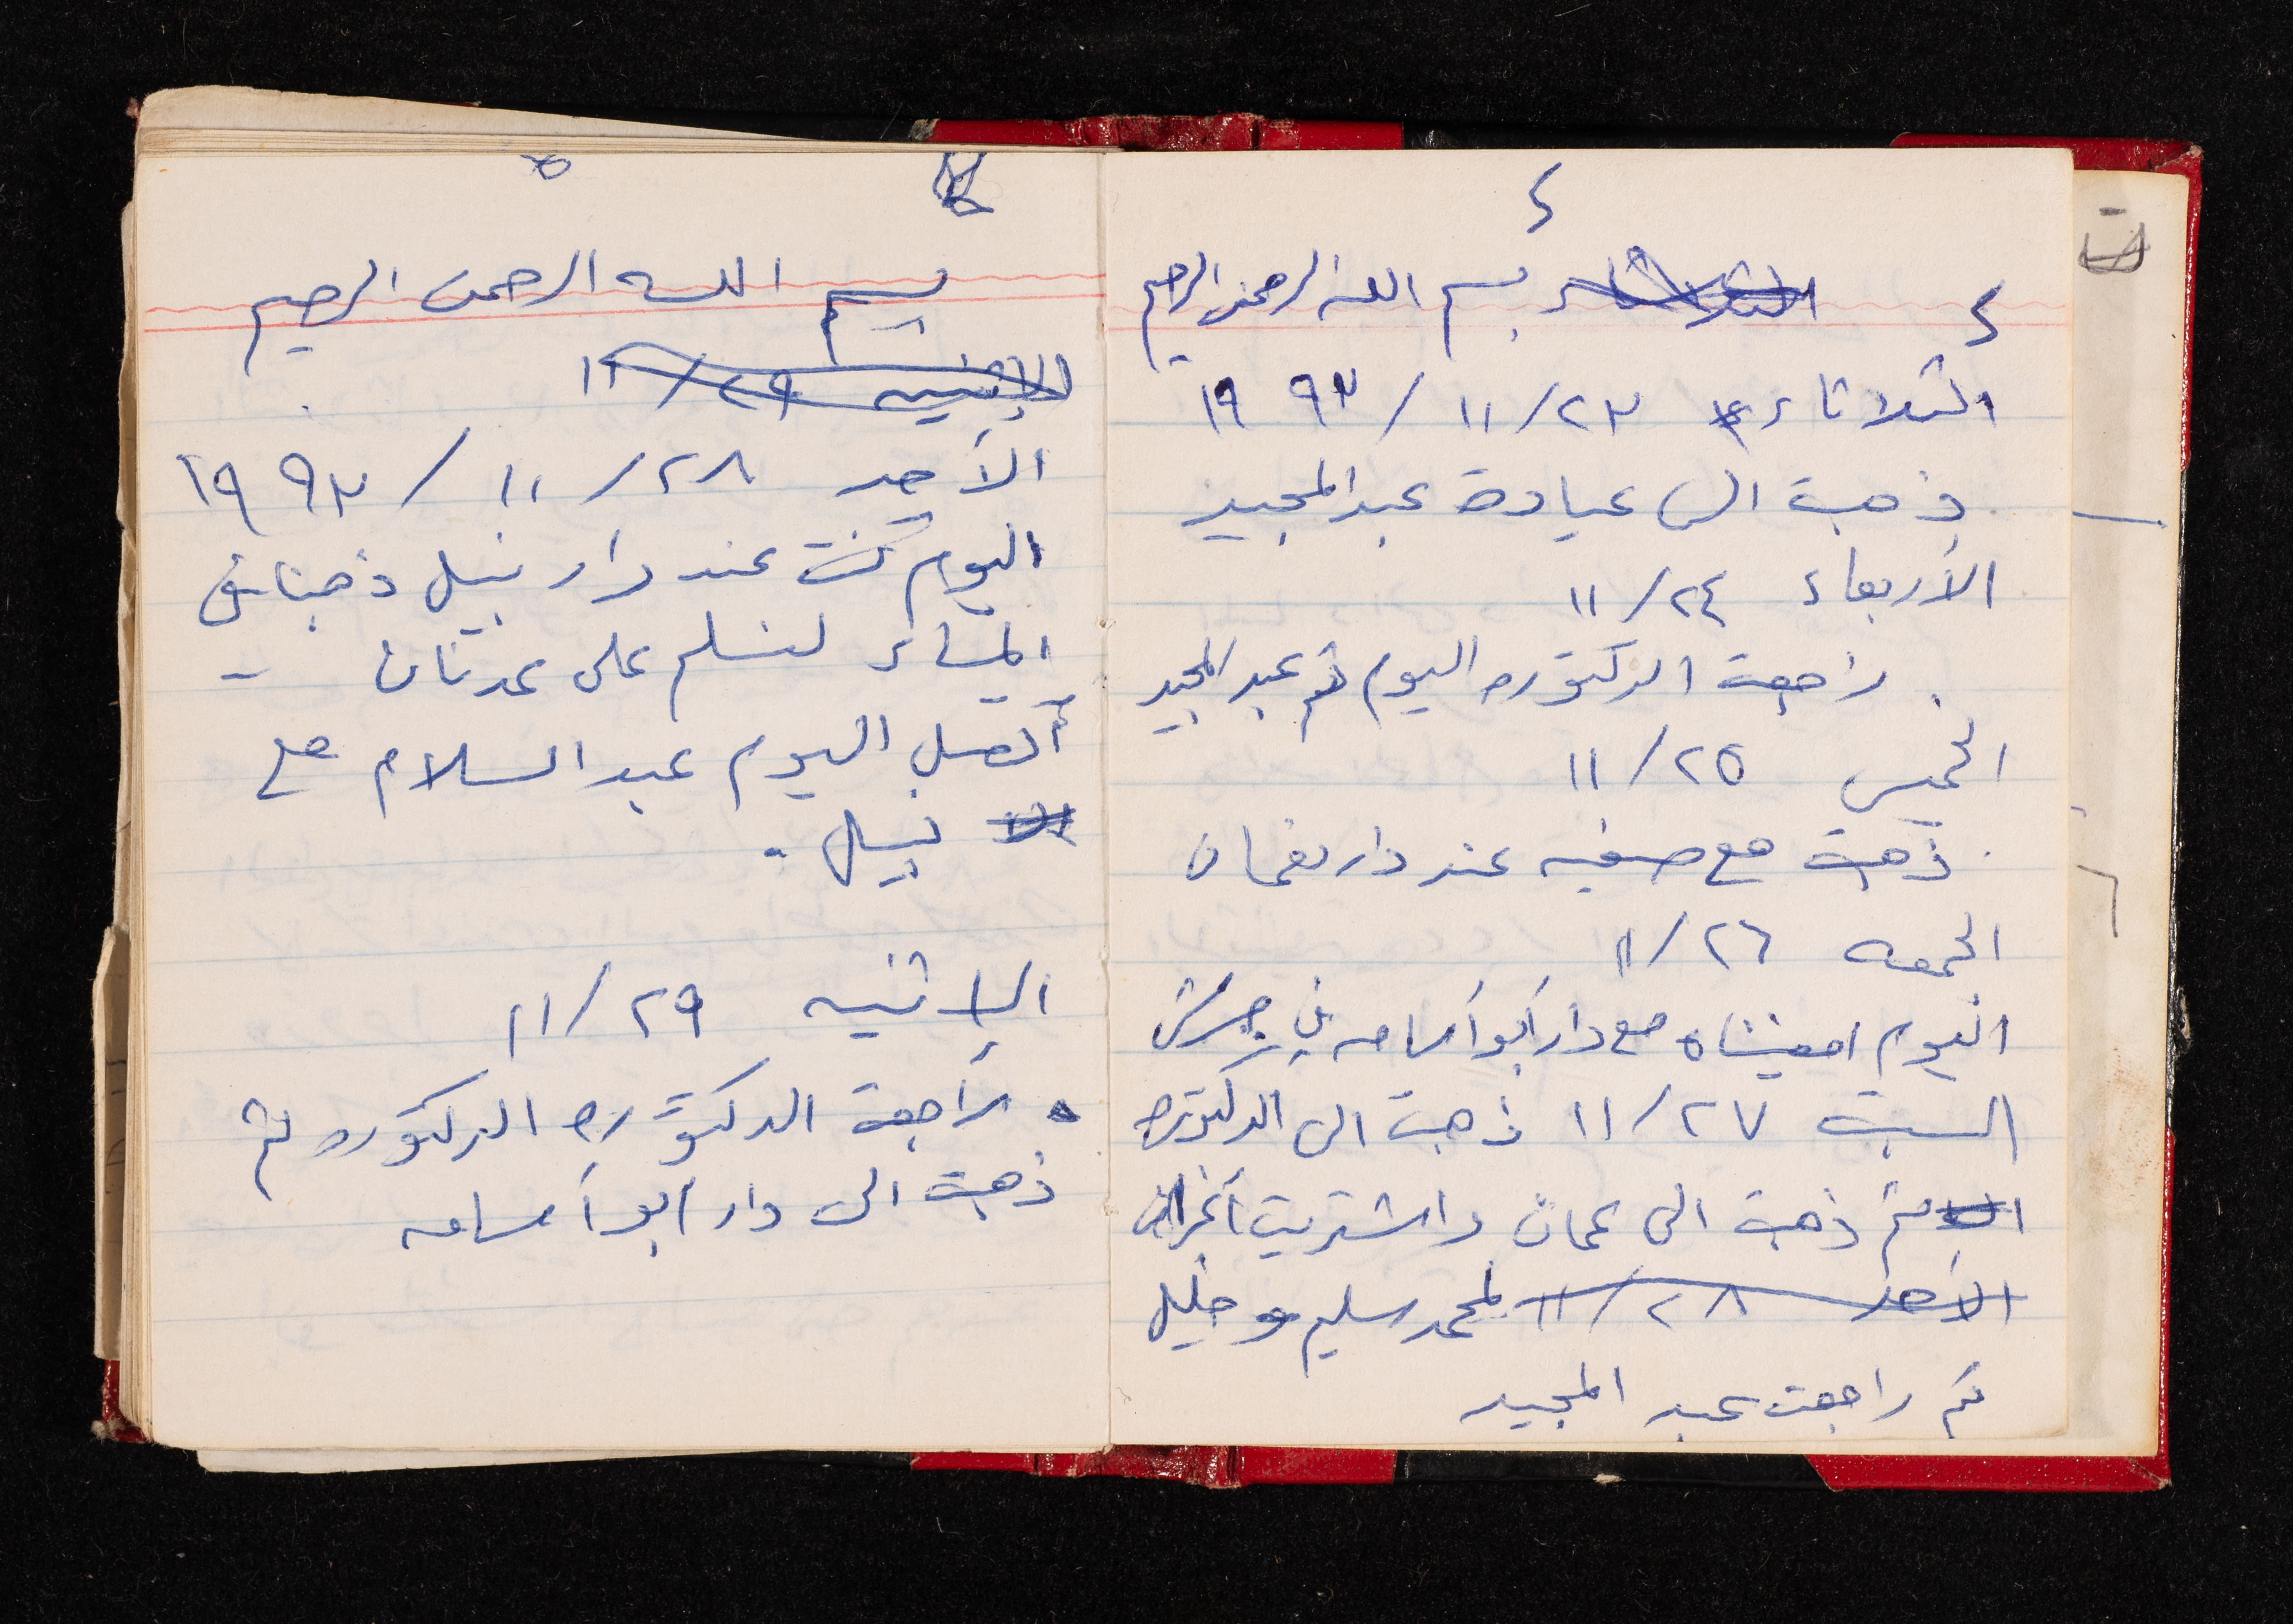 ٤
٤ الثلاثاء بسم الله الرحمن الرحيم
الثلاثاء ٢٣/ ١١/ ١٩٩٣
ذهبت الى عيادة عبد المجيد
الأربعاء ٢٤/ ١١
راجعت الدكتوره اليوم ثم عبد المجيد
الخميس ٢٥/ ١١
ذهبت مع صفيه عند دار نعمان
الجمعه ٢٦/ ١١
اليوم امضيناه مع دار أبو أسامه في جرش
السبت ٢٧/ ١١ ذهبت الى الدكتوره
ثم ذهبت الى عمان واشتريت أغراض
الأحد ٢٨/ ١١ لمحمد سليم و خليل
ثم راجعت عبد المجيد
٥
بسم الله الرحمن الرحيم
الإثنين ٢٩/ ١١
الأحد ٢٨/ ١١/ ١٩٩٣
اليوم كنت عند دار نبيل ذهبنا في
المساء لنسلم على عدنان -
أتصل اليوم عبد السلام مع
نبيل .
الإثنين ٢٩/ ١١
راجعت الدكتوره الدكتوره ثم
ذهبت الى دار أبو أسامه